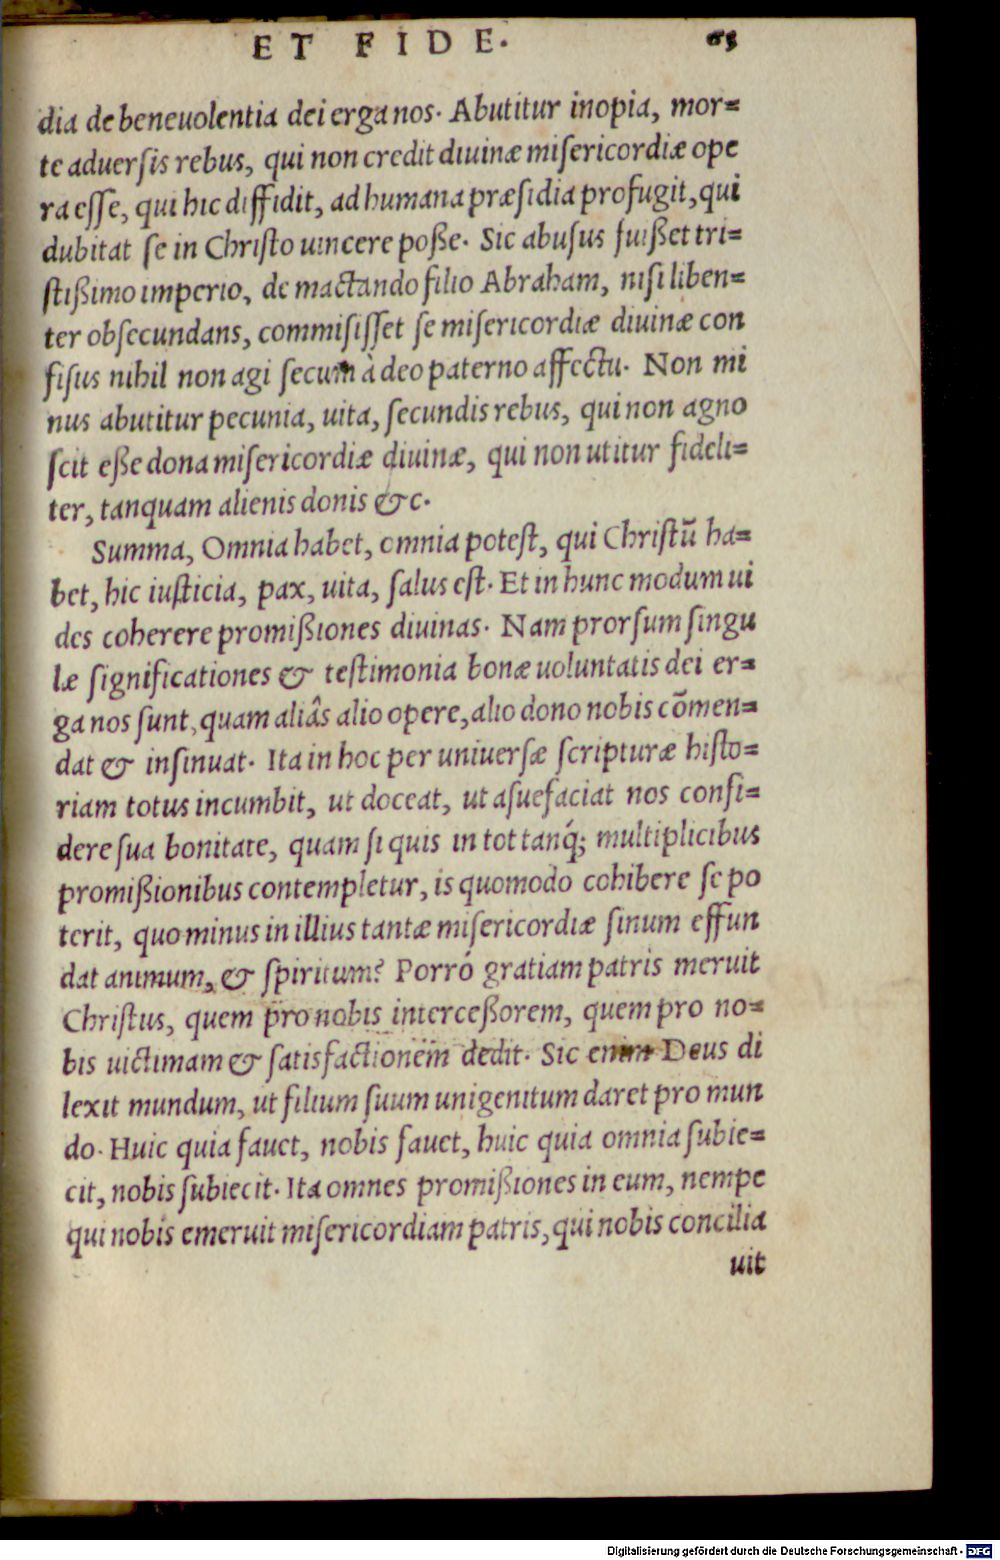 ET FIDE.
dia de beneuolentia dei erga nos. Abutitur inopia, mor=
te aduersis rebus, qui non credit diuinæ misericordiæ ope
ra esse, qui hic diffidit, ad humana præsidia profugit, qui
dubitat se in Christo uincere poße. Sic abusus fuißet tri=
stißimo imperio, de mactando filio Abraham, nisi liben=
ter obsecundans, commisisset se misericordiæ diuinæ con
fisus nihil non agi secum à deo paterno affectu. Non mi
nus abutitur pecunia, uita, secundis rebus, qui non agno
scit eße dona misericordiæ diuinæ, qui non utitur fideli=
ter, tanquam alienis donis &c.
Summa, Omnia habet, omnia potest, qui Christū ha=
bet, hic iusticia, pax, uita, salus est. Et in hunc modum ui
des coherere promißiones diuinas. Nam prorsum singu
læ significationes & testimonia bonæ uoluntatis dei er=
ga nos sunt, quam aliâs alio opere, alio dono nobis cōmen=
dat & insinuat. Ita in hoc per uniuersæ scripturæ histo=
riam totus incumbit, ut doceat, ut asuefaciat nos confi=
dere sua bonitate, quam si quis in tot tanq́; multiplicibus
promißionibus contempletur, is quomodo cohibere se po
terit, quo minus in illius tantæ misericordiæ sinum effun
dat animum, & spiritum? Porró gratiam patris meruit
Christus, quem pro nobis interceßorem, quem pro no=
bis uictimam & satisfactionem dedit. Sic enim Deus di
lexit mundum, ut filium suum unigenitum daret pro mun
do. Huic quia fauet, nobis fauet, huic quia omnia subie=
cit, nobis subiecit. Ita omnes promißiones in eum, nempe
qui nobis emeruit misericordiam patris, qui nobis concilia
uit
Digitalisierung gefördert durch die Deutsche Forschungsgemeinschaft - DFG